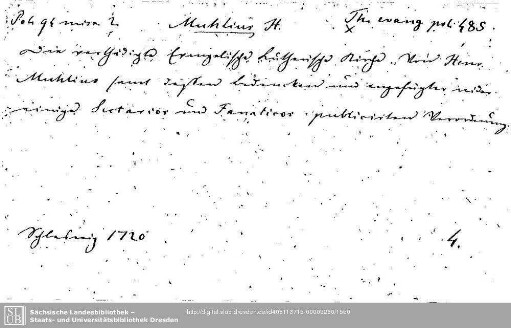 Muhlius H. Th. evang. pol. 485.
Die verthidigte Evangelische Lutherische Kirche. Von Henr.
Muhlius samt dessen Bedencken und angefügter wider
einige Sectarios und Fanaticos publicirten Verordnung.
Schleswig 1720 4.
SLUB Sächsische Landesbibliothek –
Staats- und Universitätsbibliothek Dresden